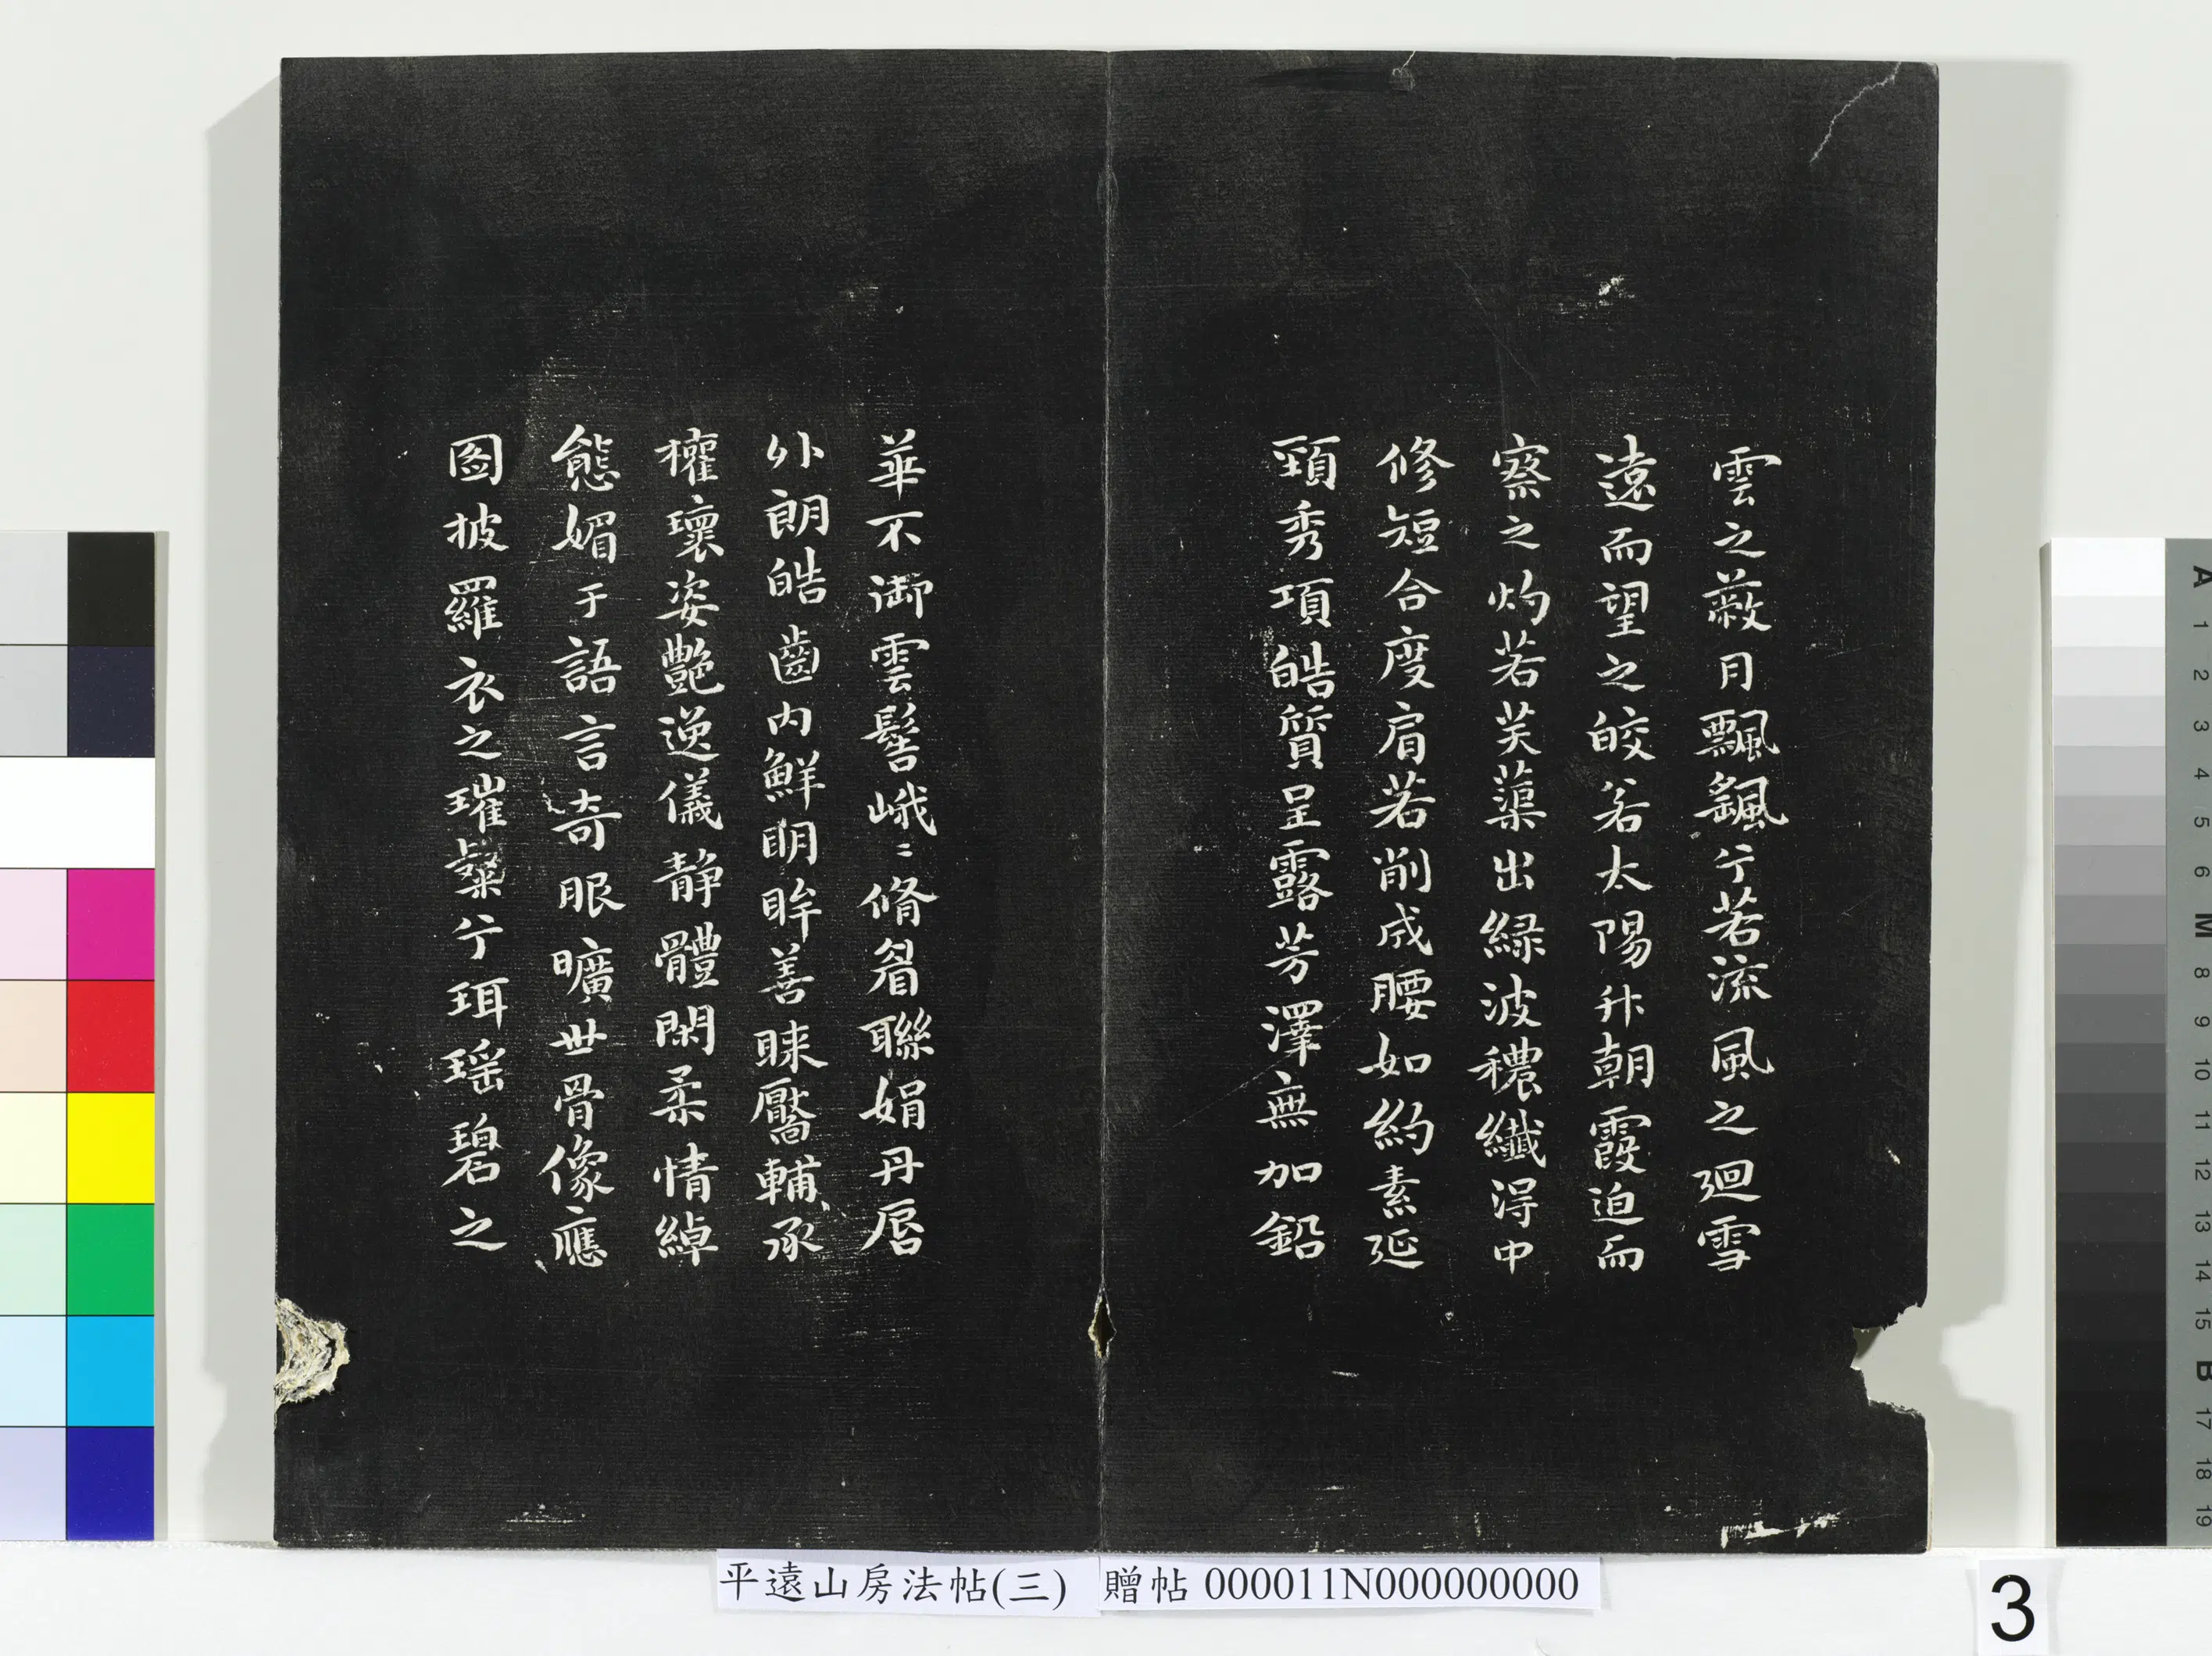 雲之蔽月飄颻兮若流風之廻雪
遠而望之皎若太陽升朝霞迫而
察之灼若芙蕖出緑波穠纖淂中
修短合度肩若削成腰如約素延
頸秀項皓質呈露芳澤無加鉛
華不御雲髻峨〻脩眉聯娟丹唇
外朗皓齒内鮮明眸善睞靨輔承
權瓌姿艷逸儀静體閑柔情綽
態媚于語言奇眼曠世骨像應
圖披羅衣之璀粲兮珥瑶碧之
平遠山房法帖(三) 贈帖 000011N000000000
3
A 1 2 3 4 5 6 M 8 9 10 11 12 13 14 15 B 17 18 19